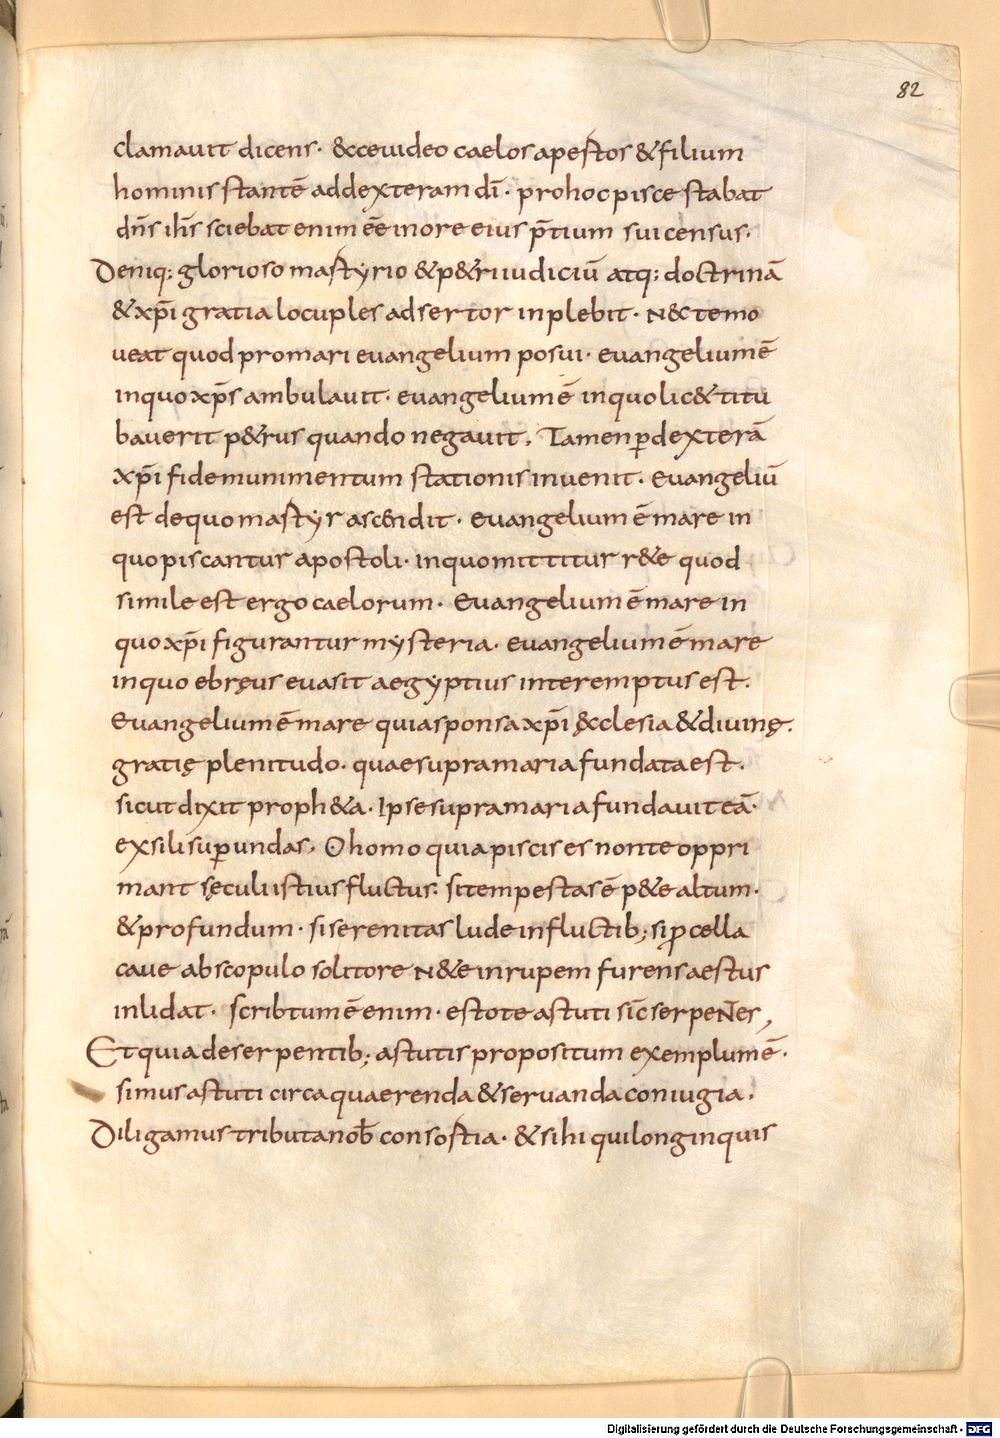 82
clamauit dicens· &cce uideo caelos apertos & filium
hominis stantē ad dexteram dī· pro hoc pisce stabat
dn̄s ih̄s sciebat enim ēē in ore eius p̄tium sui census·
Deniq; glorioso martyrio & p&ri iudiciū atq; doctrinā
& xp̄i gratia locuples adsertor inplebit· N&c te mo
ueat quod pro mari euangelium posui· euangelium ē
in quo xp̄s ambulauit· euangelium ē in quo lic& titu
bauerit p&rus quando negauit, Tamen ꝑ dexterā
xp̄i fidem munimentum stationis inuenit· euangeliū
est de quo martyr ascendit· euangelium ē mare in
quo piscantur apostoli· in quo mittitur r&e quod
simile est ergo caelorum· euangelium ē mare in
quo xp̄i figurantur mysteria· euangelium ē mare
in quo ebręus euasit aegyptius interemptus est·
Euangelium ē mare quia sponsa xp̄i &clesia & diuinę·
gratię plenitudo· quae supra maria fundata est·
sicut dixit proph&a· Ipse supra maria fundauit eā·
exsili suꝑ undas, O homo quia piscis es non te oppri
mant sęculi istius fluctus· si tempestas ē p&e altum·
& profundum· si serenitas lude in fluctib; si ꝓcella
caue ab scopulo so litore N&e in rupem furens aestus
inlidat· scribtum ē enim· estote astuti sic̄ serpeNtes,
Et quia de serpentib; astutis propositum exemplum ē·
simus astuti circa quaerenda & seruanda coniugia·
Diligamus tributa nob̄ consortia· & si hi qui longinquis
Digitalisierung gefördert durch die Deutsche Forschungsgemeinschaft - DFG